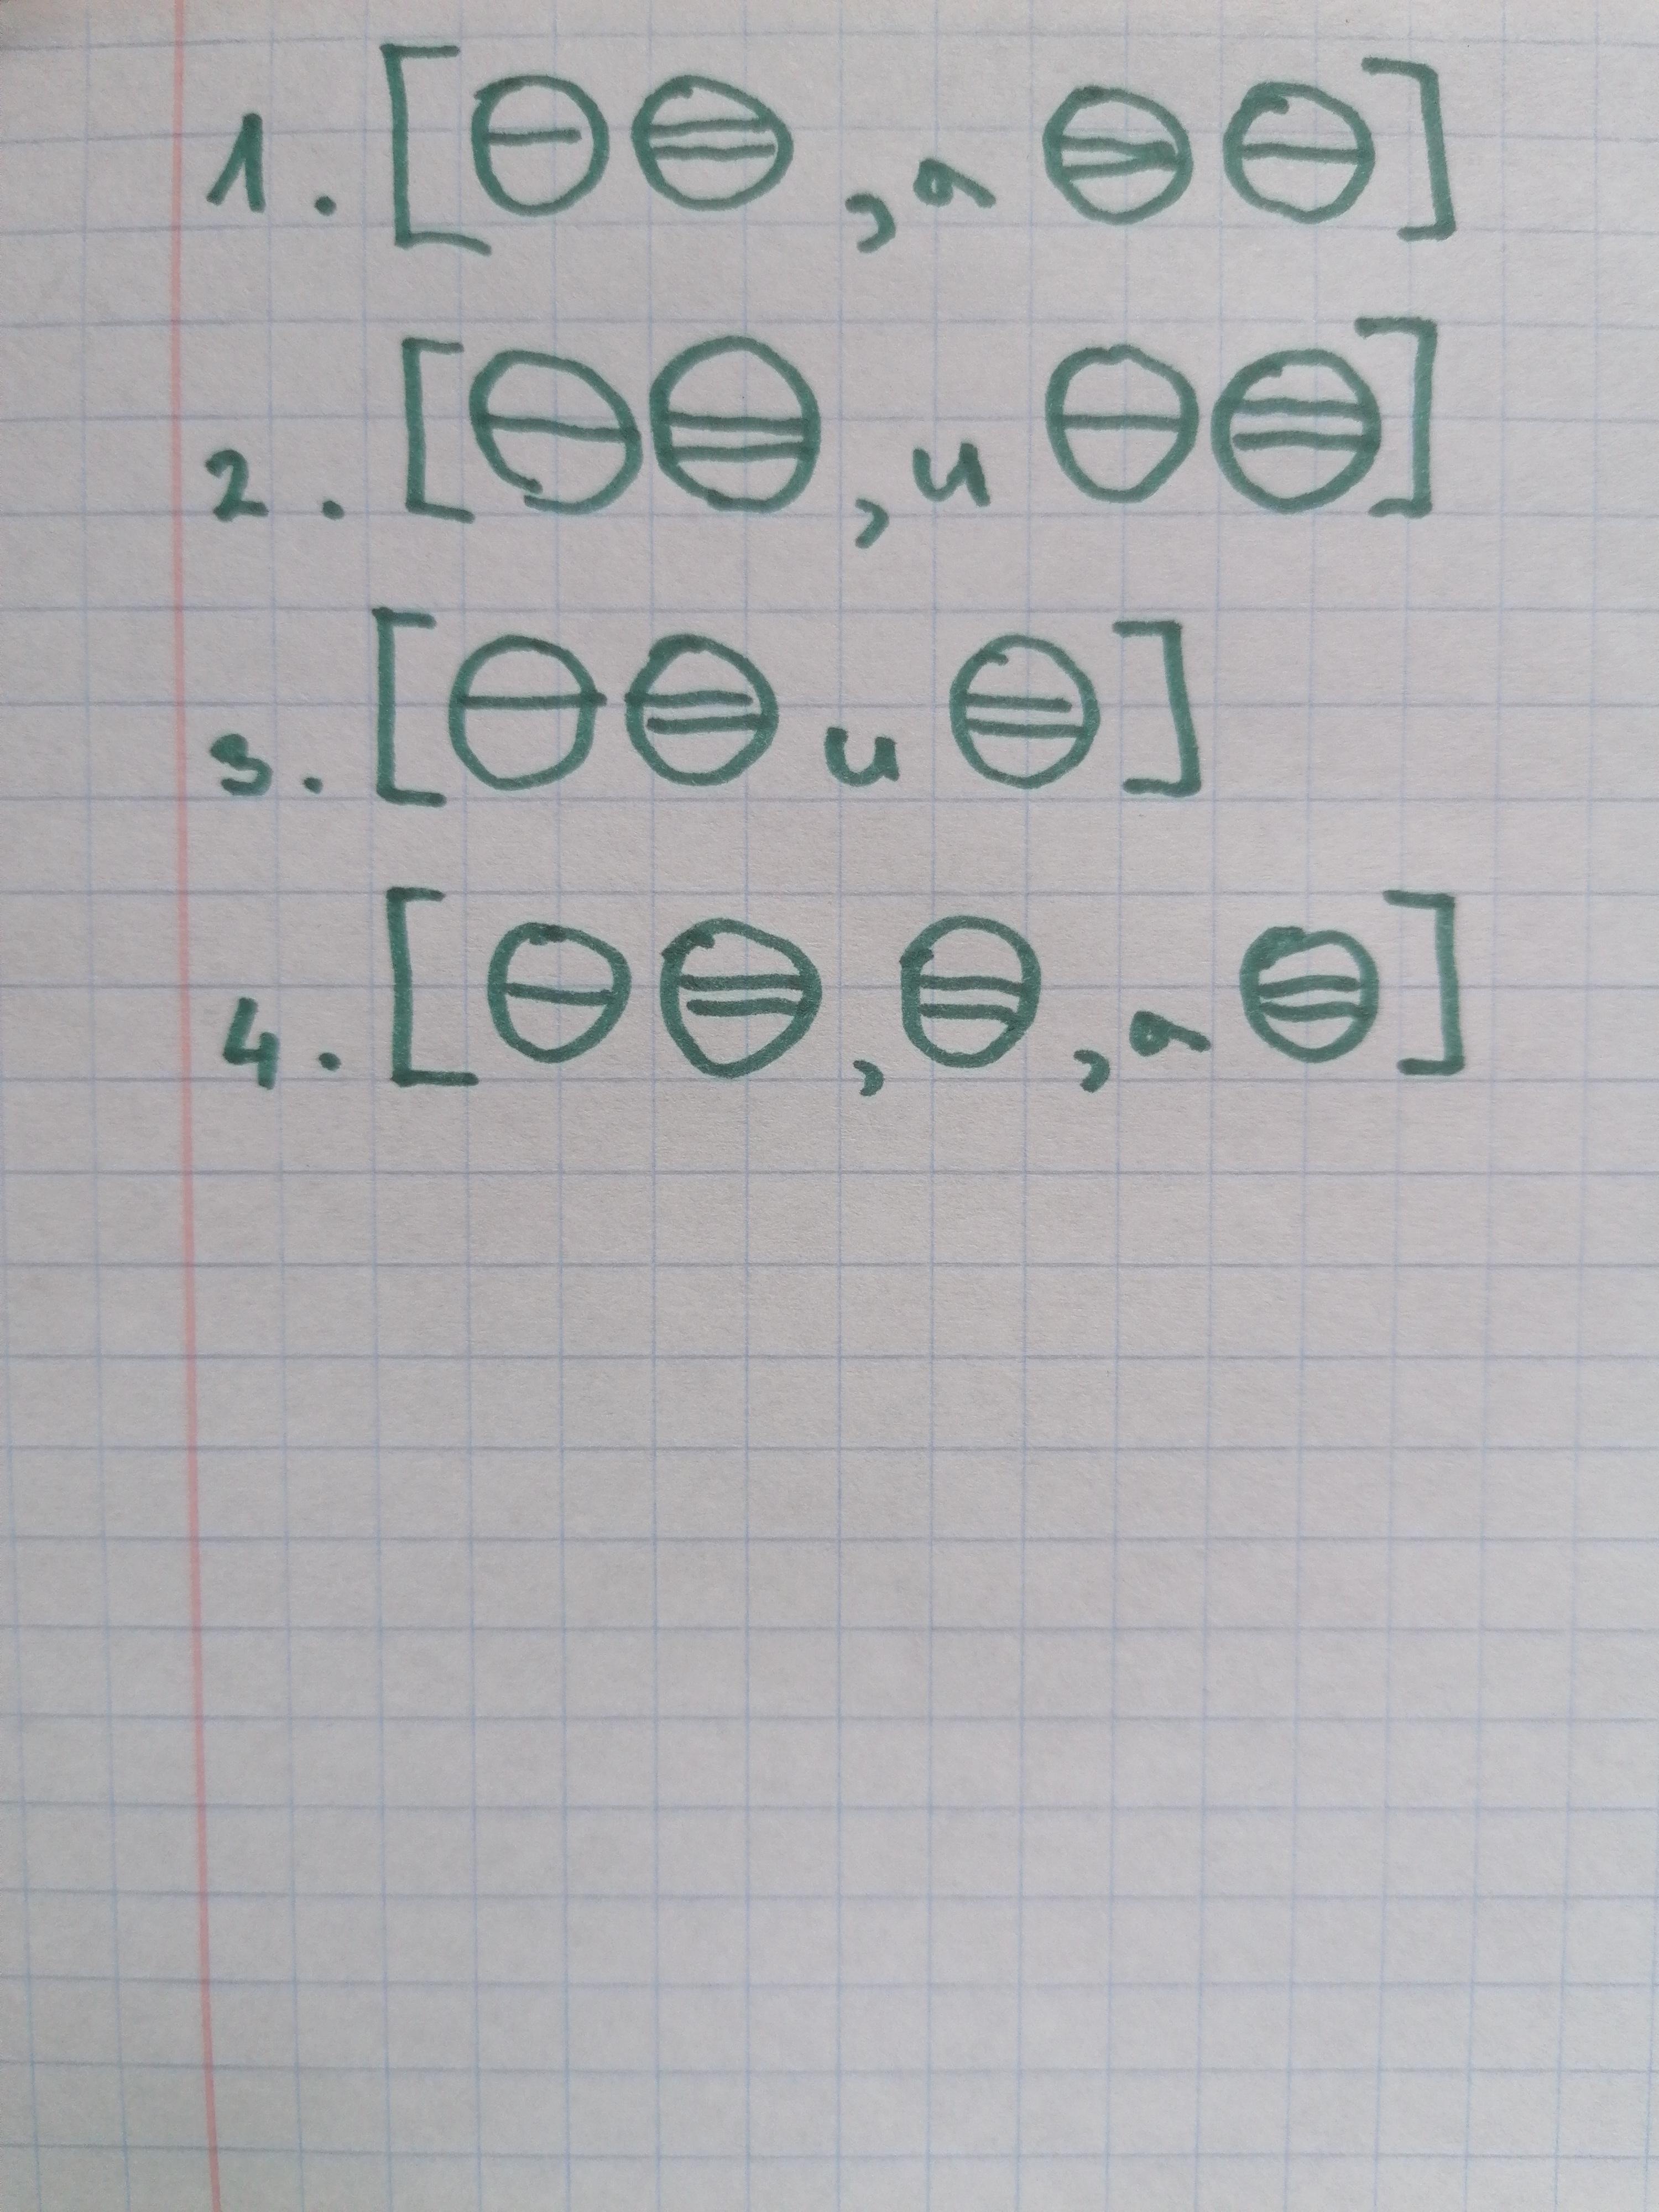 1. [⊖ ⊜, а ⊜ ⊖]
2. [⊖ ⊜, и ⊖ ⊜]
3. [⊖ ⊜ и ⊜]
4. [⊖ ⊜, ⊜, а ⊜]